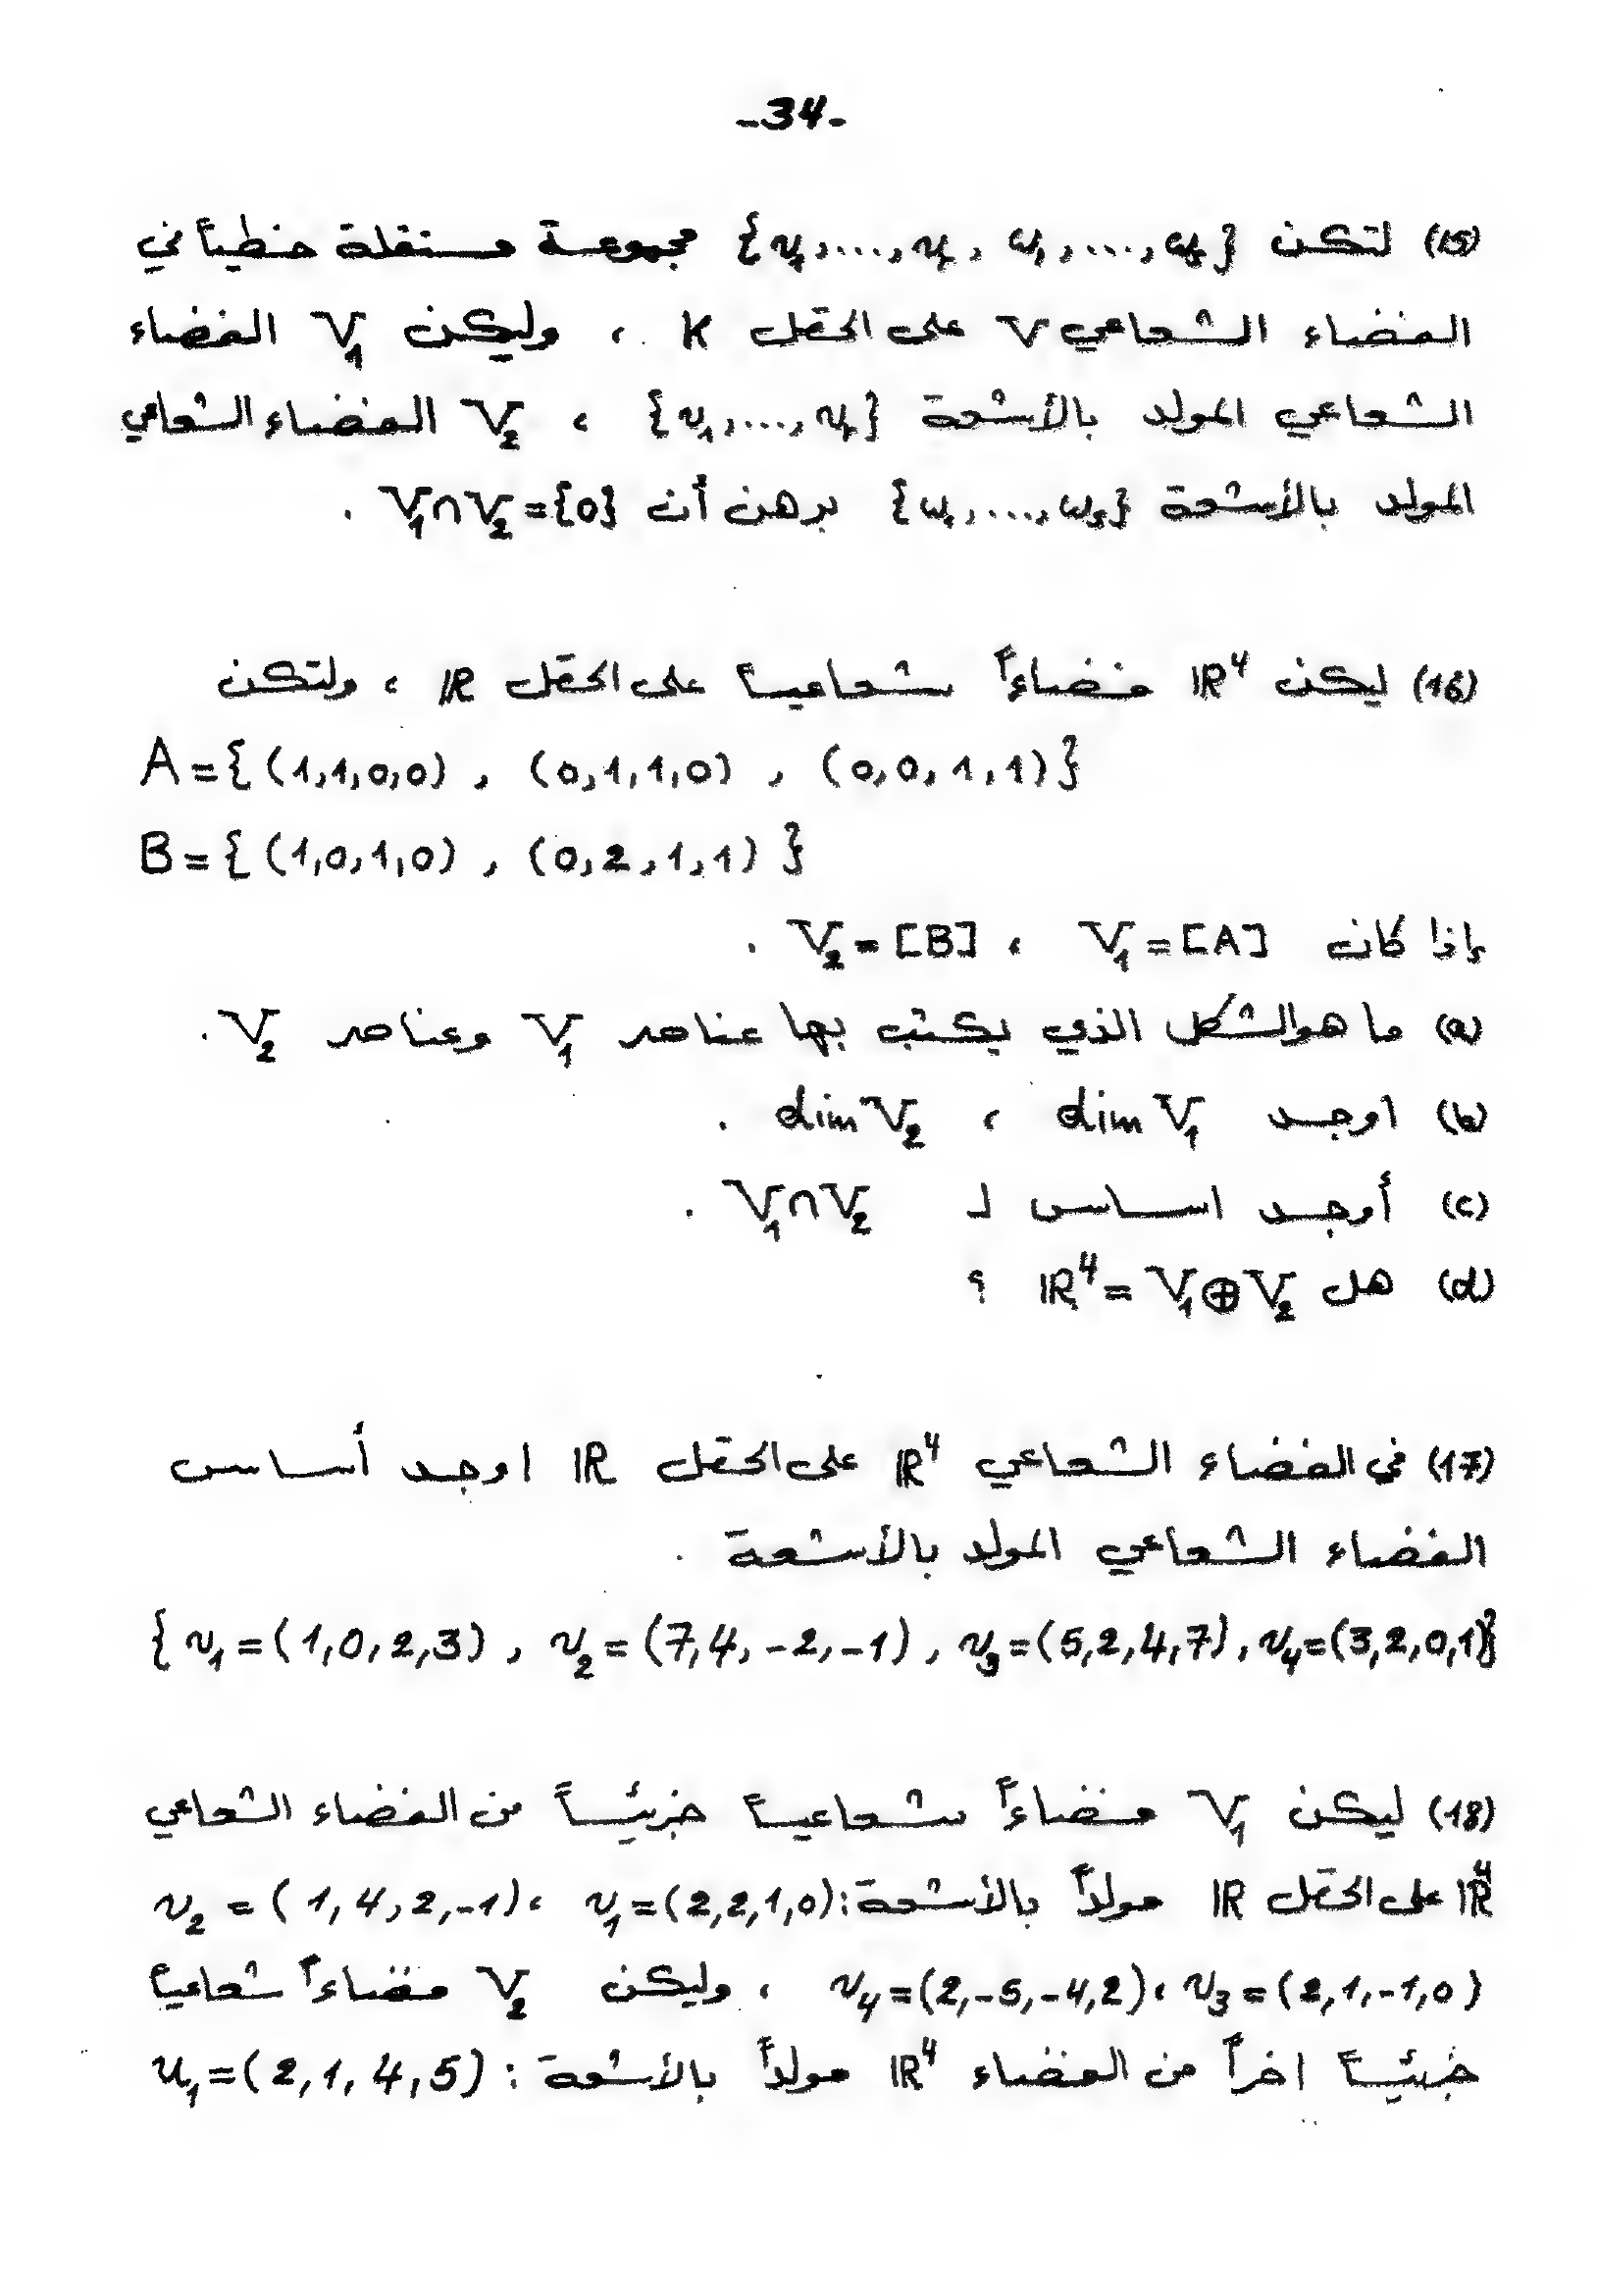 -34-
(15) لتكن {v₁,...,vᵣ, w₁,...,wₛ} مجموعة مستقلة خطياً في
الفضاء الشعاعي V على الحقل K ، وليكن V₁ الفضاء
الشعاعي المولد بالأشعة {v₁,...,vᵣ} ، V₂ الفضاء الشعاعي
المولد بالأشعة {w₁,...,wₛ} برهن أن V₁∩V₂={0} .
(16) ليكن ℝ⁴ فضاءاً شعاعياً على الحقل ℝ ، ولتكن
A={(1,1,0,0) , (0,1,1,0) , (0,0,1,1)}
B={(1,0,1,0) , (0,2,1,1)}
إذا كان V₁=[A] ، V₂=[B] .
(a) ما هو الشكل الذي يكتب بها عناصر V₁ وعناصر V₂ .
(b) اوجد dim V₁ ، dim V₂ .
(c) أوجد اساس لـ V₁∩V₂ .
(d) هل ℝ⁴=V₁⊕V₂ ؟
(17) في الفضاء الشعاعي ℝ⁴ على الحقل ℝ اوجد أساس
الفضاء الشعاعي المولد بالأشعة .
{v₁=(1,0,2,3) , v₂=(7,4,-2,-1) , v₃=(5,2,4,7) , v₄=(3,2,0,1)}
(18) ليكن V₁ فضاءاً شعاعياً جزئياً من الفضاء الشعاعي
ℝ⁴ على الحقل ℝ مولداً بالأشعة: v₁=(2,2,1,0) ، v₂=(1,4,2,-1) ،
v₃=(2,1,-1,0) ، v₄=(2,-5,-4,2) ، وليكن V₂ فضاءاً شعاعياً
جزئياً اخراً من الفضاء ℝ⁴ مولداً بالأشعة : u₁=(2,1,4,5)